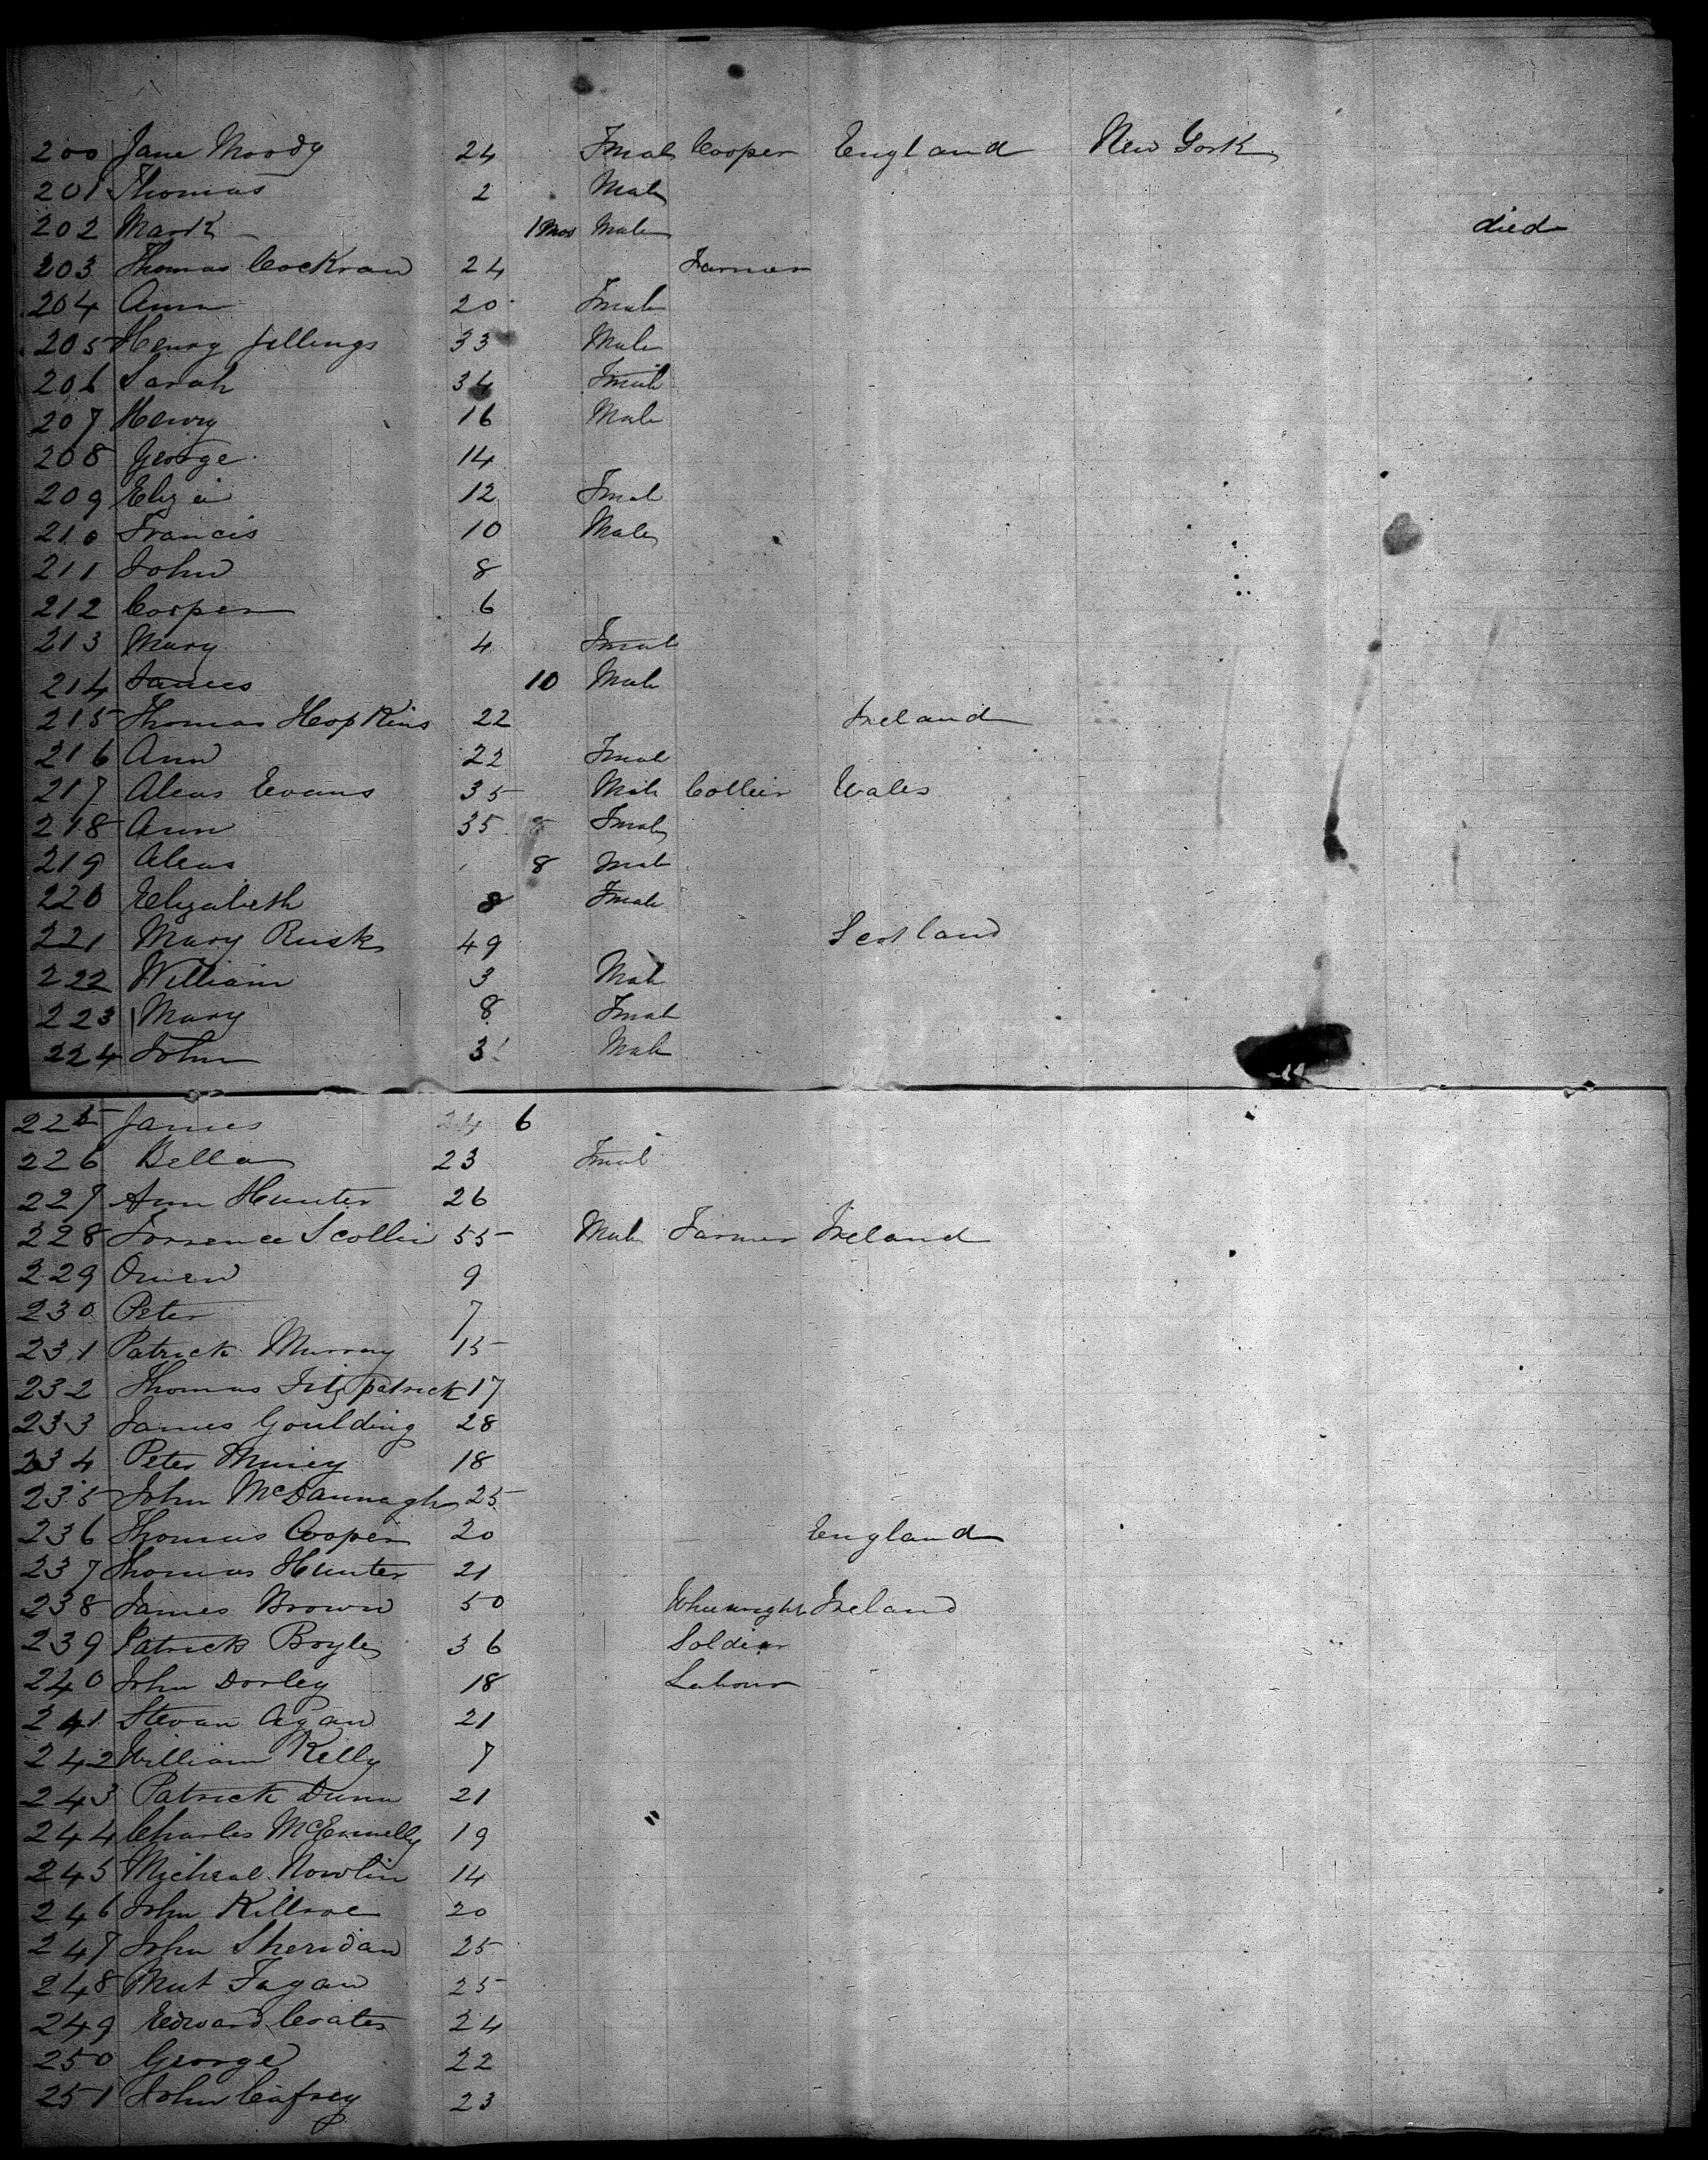 200 Jane Moody 24 Fmale Cooper England New York
201 Thomas 2 Male
202 Mark 1 Mos Male died
203 Thomas Cockran 24 Farmer
204 Ann 20 Fmale
205 Henry Jellings 33 Male
206 Sarah 34 Fmale
207 Henry 16 Male
208 George 14
209 Eliza 12 Fmale
210 Francis 10 Male
211 John 8
212 Cooper 6
213 Mary 4 Fmale
214 James 10 Male
215 Thomas Hopkins 22 Ireland
216 Ann 22 Fmale
217 Evans 35 Male Collier Wales
218 Ann 35 Fmale
219 8 Male
220 Elizabeth 8 Fmale
221 Mary Rusk 49 Scotland
222 William 3 Male
223 Mary 8 Fmale
224 John 3 Male
225 James 24 6
226 Bella 23 Fmale
227 Ann Hunter 26
228 Torrence Scollin 55 Male Farmer Ireland
229 Owen 9
230 Peter 7
231 Patrick Murray 15
232 Thomas Fitzpatrick 17
233 James Goulding 28
234 Peter 18
235 John McDannagh 25
236 Thomas Cooper 20 England
237 Thomas Hunter 21
238 James Brown 50 Wheewright Ireland
239 Patrick Boyle 36 Soldier
240 John Dorley 18 Labour
241 Stevan Agan 21
242 William Kelly 7
243 Patrick Dunn 21
244 Charles 19
245 Micheal Nowlin 14
246 John Killroe 20
247 John Sheridan 25
248 Mat Fagan 25
249 Edward Coates 24
250 George 22
251 John Cafrey 23